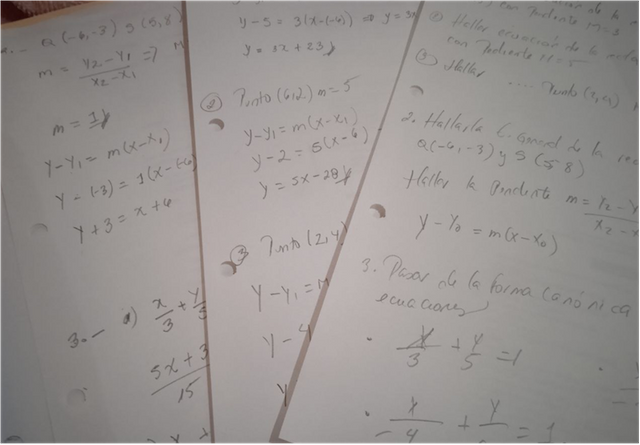 a(-6,-3) y S(5,8)
m = y₂-y₁ / x₂-x₁ =>
m = 1
y-y₁ = m(x-x₁)
y-(-3) = 1(x-(-6
y+3 = x+6
3.- a) x/3 + y/5
5x+3 / 15
y-5 = 3(x-(-6) => y=3x
y = 3x+23
② Punto (6,2) m=5
y-y₁ = m(x-x₁)
y-2 = 5(x-6)
y = 5x-28
③ Punto (2,4)
y-y₁ =
y-4
y
con Pendiente M=3
② Hallar ecuación de la
con Pendiente M=5
③ Hallar .... Punto (2,4)
2. Hallar la E. General de la rec
a(-6,-3) y S(5 8)
Hallar la Pendiente m = y₂-y / x₂-x
y-y₀ = m(x-x₀)
3. Pasar de la forma Canónica
ecuaciones
· x/3 + y/5 = 1
· x/-4 + y = 1